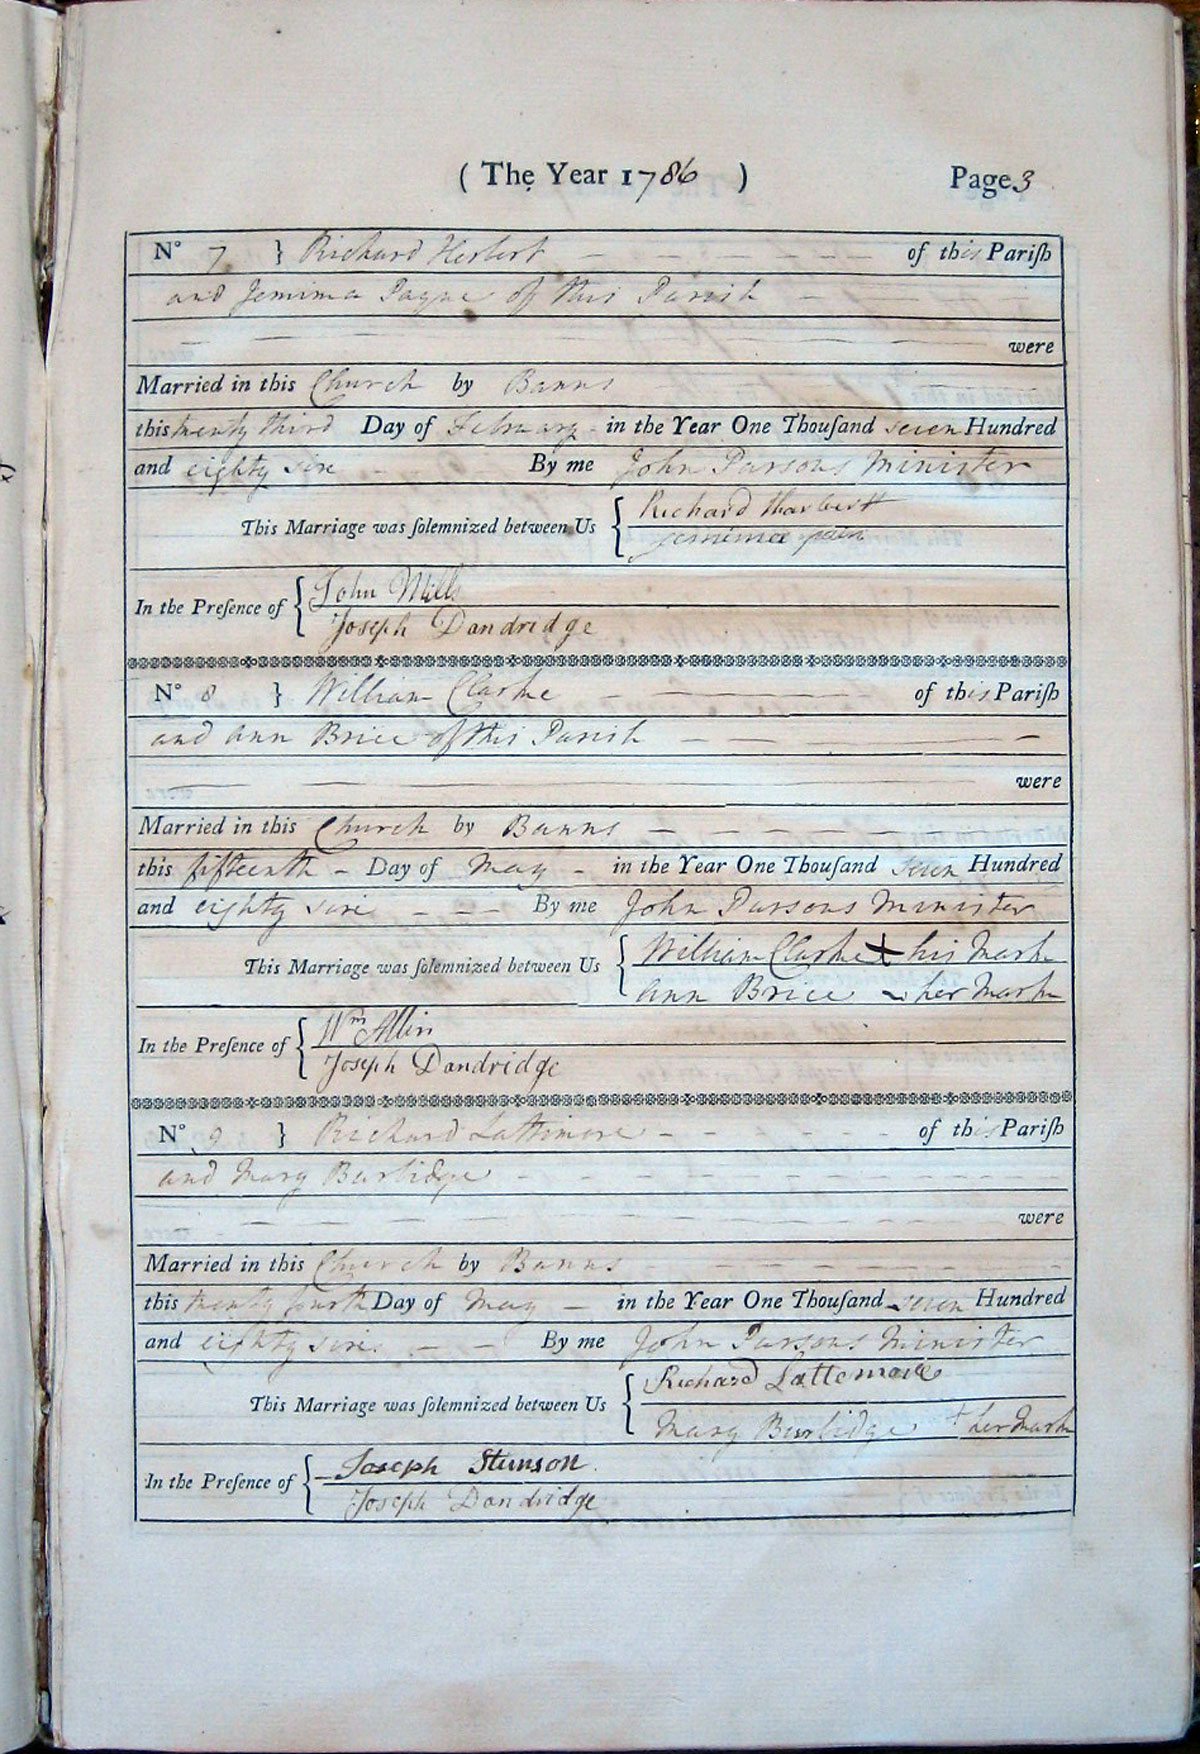 ( The Year 1786 ) Page 3
N° 7 } Richard Herbert of this Pariſh
and Jemima Payne of this Parish
were
Married in this Church by Banns
this twenty third Day of February in the Year One Thouſand seven Hundred
and eighty six By me John Parsons Minister
This Marriage was ſolemnized between Us { Richard Harbert
Jemima pain
In the Preſence of { John Mills
Joseph Dandridge
N° 8 } William Clarke of this Pariſh
and Ann Brice of this Parish
were
Married in this Church by Banns
this fifteenth Day of May in the Year One Thouſand seven Hundred
and eighty six By me John Parsons Minister
This Marriage was ſolemnized between Us { William Clarke + his Mark
Ann Brice her Mark
In the Preſence of { Wm Allin
Joseph Dandridge
N° 9 } Richard Lattimore of this Pariſh
and Mary Burbidge
were
Married in this Church by Banns
this twenty fourth Day of May in the Year One Thouſand seven Hundred
and eighty six By me John Parsons Minister
This Marriage was ſolemnized between Us { Richard Lattemore
Mary Burbidge + her Mark
In the Preſence of { Joseph Stimson
Joseph Dandridge